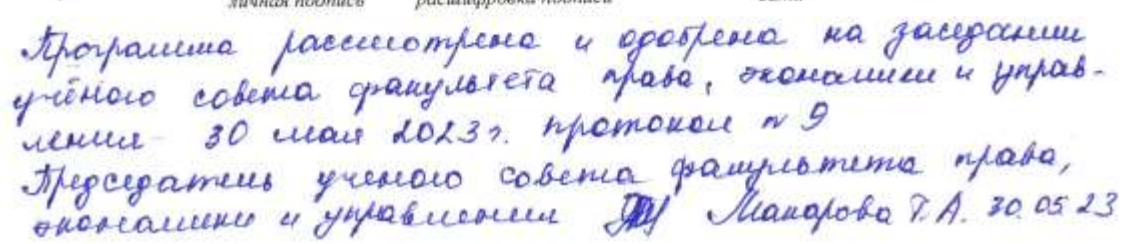 личная подпись расшифровка подписи
Программа рассмотрена и одобрена на заседании
учёного совета факультета права, экономики и управ-
ления 30 мая 2023г. протокол № 9
Председатель ученого совета факультета права,
экономики и управления Макарова Т.А. 30.05.23